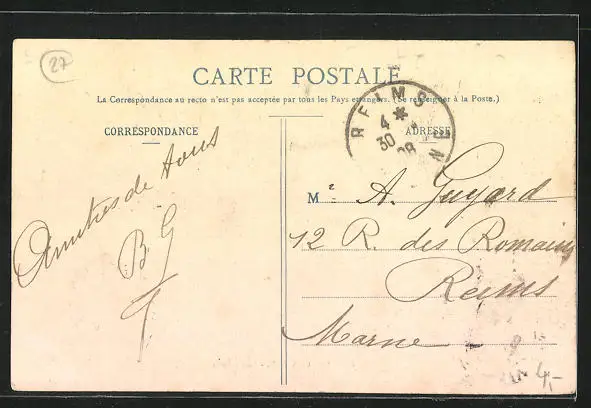 27
CARTE POSTALE
La Correspondance au recto n'est pas acceptée par tous les Pays étrangers. (Se renseigner à la Poste.)
CORRESPONDANCE
ADRESSE
REIMS
4 *
30
08
Amitiés de tous
B G
M r A. Guyard
12 R. des Romains
Reims
Marne
4,-